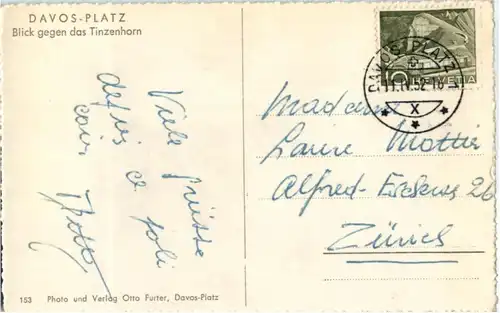 DAVOS-PLATZ
Blick gegen das Tinzenhorn
Viele Grüsse
depuis ce joli
coin
153 Photo und Verlag Otto Furter, Davos-Platz
10 HELVETIA
DAVOS PLATZ
11.IV.52-18
X
Madame
Laure Mottier
Alfred-Escherstr 26
Zürich